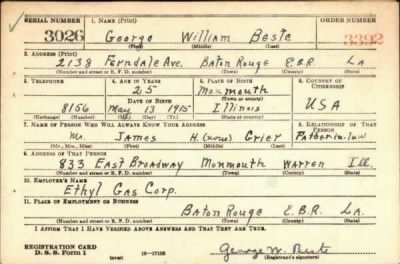 SERIAL NUMBER 1. NAME (Print) ORDER NUMBER
3026 George William Beste 3392
(First) (Middle) (Last)
2. ADDRESS (Print)
2138 Ferndale Ave. Baton Rouge E.B.R. La
(Number and street or R. F. D. number) (Town) (County) (State)
3. TELEPHONE 4. AGE IN YEARS 5. PLACE OF BIRTH 6. COUNTRY OF CITIZENSHIP
25 Monmouth
DATE OF BIRTH (Town or county)
8156 May 13 1915 Illinois USA
(Exchange) (Number) (Mo.) (Day) (Yr.) (State or country)
7. NAME OF PERSON WHO WILL ALWAYS KNOW YOUR ADDRESS 8. RELATIONSHIP OF THAT PERSON
Mr. James H. (none) Grier Father-in-law
(Mr., Mrs., Miss) (First) (Middle) (Last)
9. ADDRESS OF THAT PERSON
833 East Broadway Monmouth Warren Ill.
(Number and street or R. F. D. number) (Town) (County) (State)
10. EMPLOYER'S NAME
Ethyl Gas Corp.
11. PLACE OF EMPLOYMENT OR BUSINESS
Baton Rouge E.B.R. La.
(Number and street or R. F. D. number) (Town) (County) (State)
I AFFIRM THAT I HAVE VERIFIED ABOVE ANSWERS AND THAT THEY ARE TRUE.
REGISTRATION CARD
D. S. S. Form 1 (over) 16-17105 George W. Beste
(Registrant's signature)